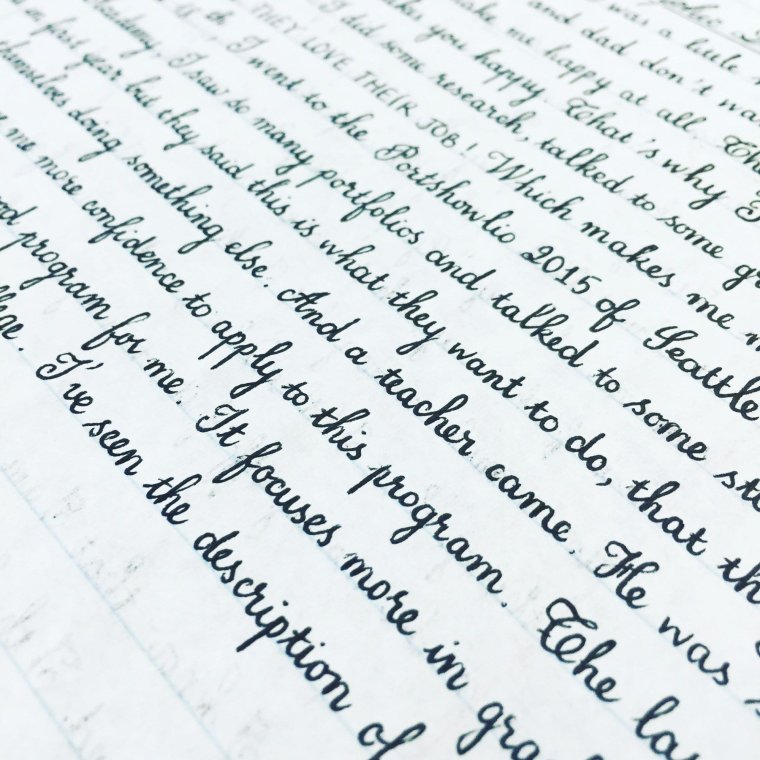 was a little
and dad don't wa
make me happy at all. The
you happy That's why I
I did some research, talked to some gr
THEY LOVE THEIR JOB! Which makes me m
I went to the Portshowlio 2015 of Seattle
Academy. I saw so many portfolios and talked to some stu
in first year but they said this is what they want to do, that th
themselves doing something else. And a teacher came. He was s
me more confidence to apply to this program. The las
program for me. It focuses more in gra
I've seen the description of